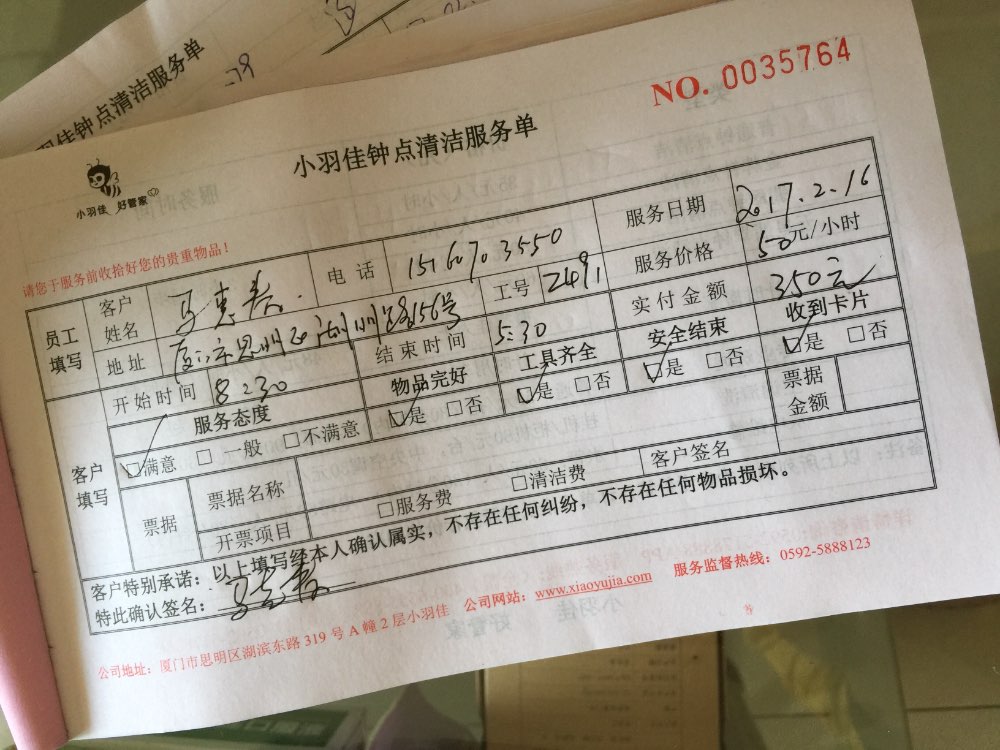 小羽佳钟点清洁服务单
NO. 0035764
小羽佳钟点清洁服务单
小羽佳 好管家
请您于服务前收拾好您的贵重物品！
员工填写
客户姓名 马惠 电话 15167073550 服务日期 2017.2.16
地址 厦门市思明区湖州路156号 工号 2491 服务价格 50元/小时
开始时间 8:30 结束时间 5:30 实付金额 350元
客户填写
服务态度 物品完好 工具齐全 安全结束 收到卡片
☑满意 □一般 □不满意 ☑是 □否 ☑是 □否 ☑是 □否 ☑是 □否
票据 票据名称 票据金额
开票项目 □服务费 □清洁费 客户签名
客户特别承诺：以上填写经本人确认属实，不存在任何纠纷，不存在任何物品损坏。
特此确认签名：马惠
公司地址：厦门市思明区湖滨东路 319 号 A 幢 2 层小羽佳 公司网站：www.xiaoyujia.com 服务监督热线：0592-5888123